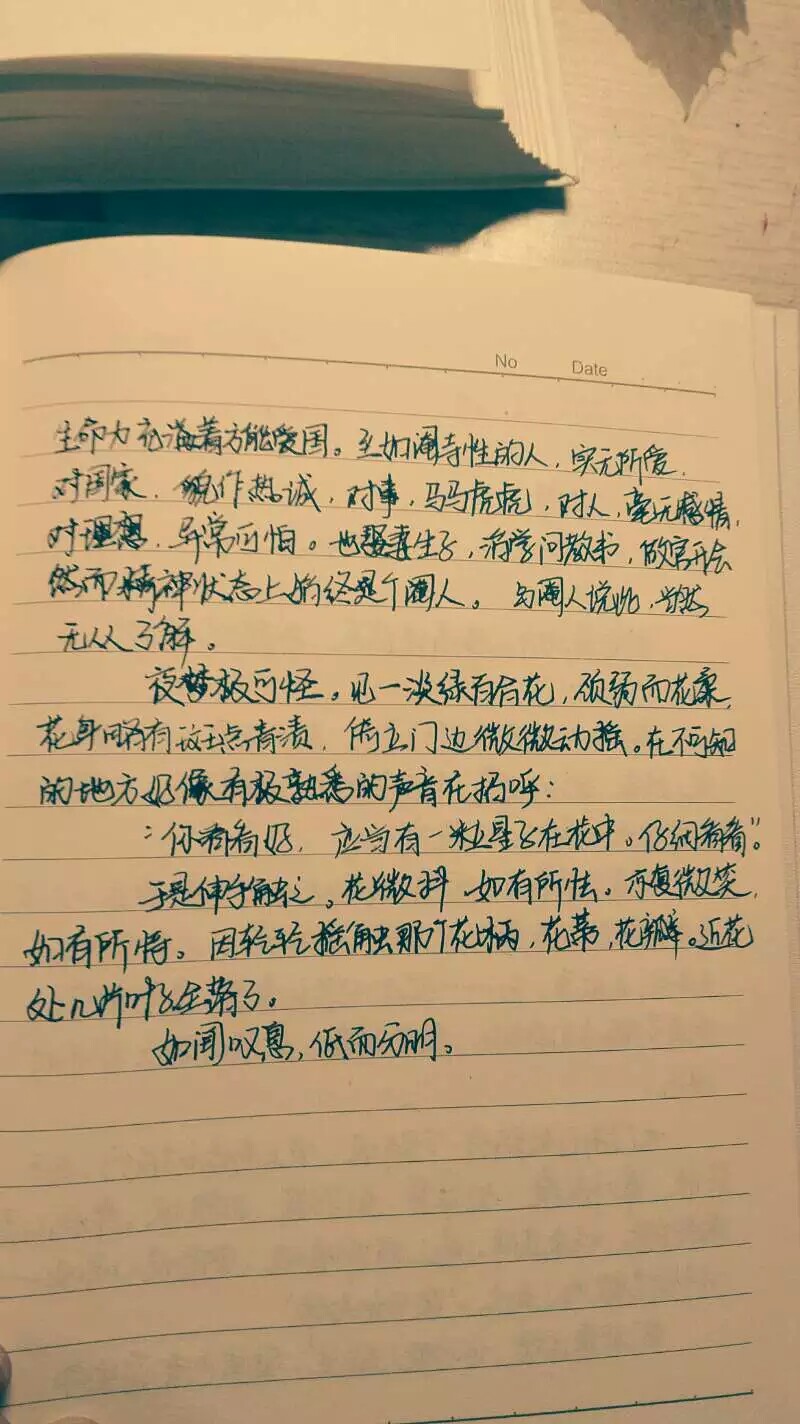 No Date
生命力充溢者方能爱国。至如阉寺性的人，实无所爱，
对国家，貌作热诚，对事，马马虎虎，对人，毫无感情，
对理想，异常可怕。也娶妻生子，治学问教书，做官开会
然而精神状态上始终是个阉人。与阉人说此，当然
无从了解。
夜梦极可怪。见一淡绿百合花，颈弱而花柔，
花身略有斑点青渍，倚立门边微微动摇。在不可知
的地方好像有极熟悉的声音在招呼：
“你看看好，应当有一粒星子在花中。仔细看看”。
于是伸手触之。花微抖，如有所怯。亦复微笑，
如有所恃。因轻轻摇触那个花柄，花蒂，花瓣。近花
处几片叶子全落了。
如闻叹息，低而分明。